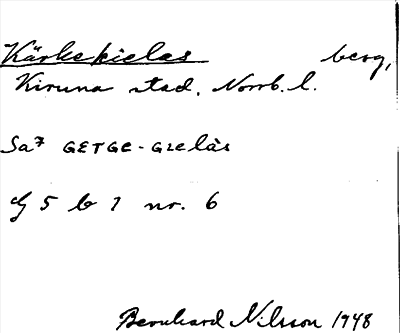 Kärkekielas berg,
Kiruna stad. Norrb. l.
Sa7 GETGE-GIELÀS
G 5 b 1 nr. 6
Bernhard Nilsson 1948